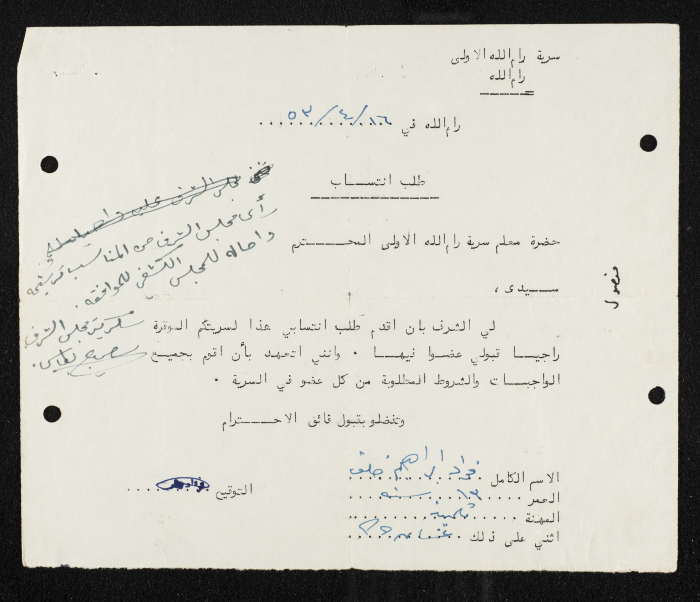 سرية رام الله الاولى
رام الله
رام الله في ١٦/٤/٥٣
طلب انتساب
مجلس الشرف
رأى مجلس الشرف من المناسب
واحاله للمجلس الكشفي للموافقة.
سكرتير مجلس الشرف
حضرة معلم سرية رام الله الاولى المحترم
سيدى ،
لي الشرف بان اقدم طلب انتسابي هذا لسريتكم الموقرة
راجيا قبولي عضوا فيها . وانني اتعهد بأن اقوم بجميع
الواجبات والشروط المطلوبة من كل عضو في السرية .
وتفضلو بقبول فائق الاحترام
الاسم الكامل فؤاد ابراهيم خلف
العمر ١٣ سنه
المهنة
اثني على ذلك
التوقيع